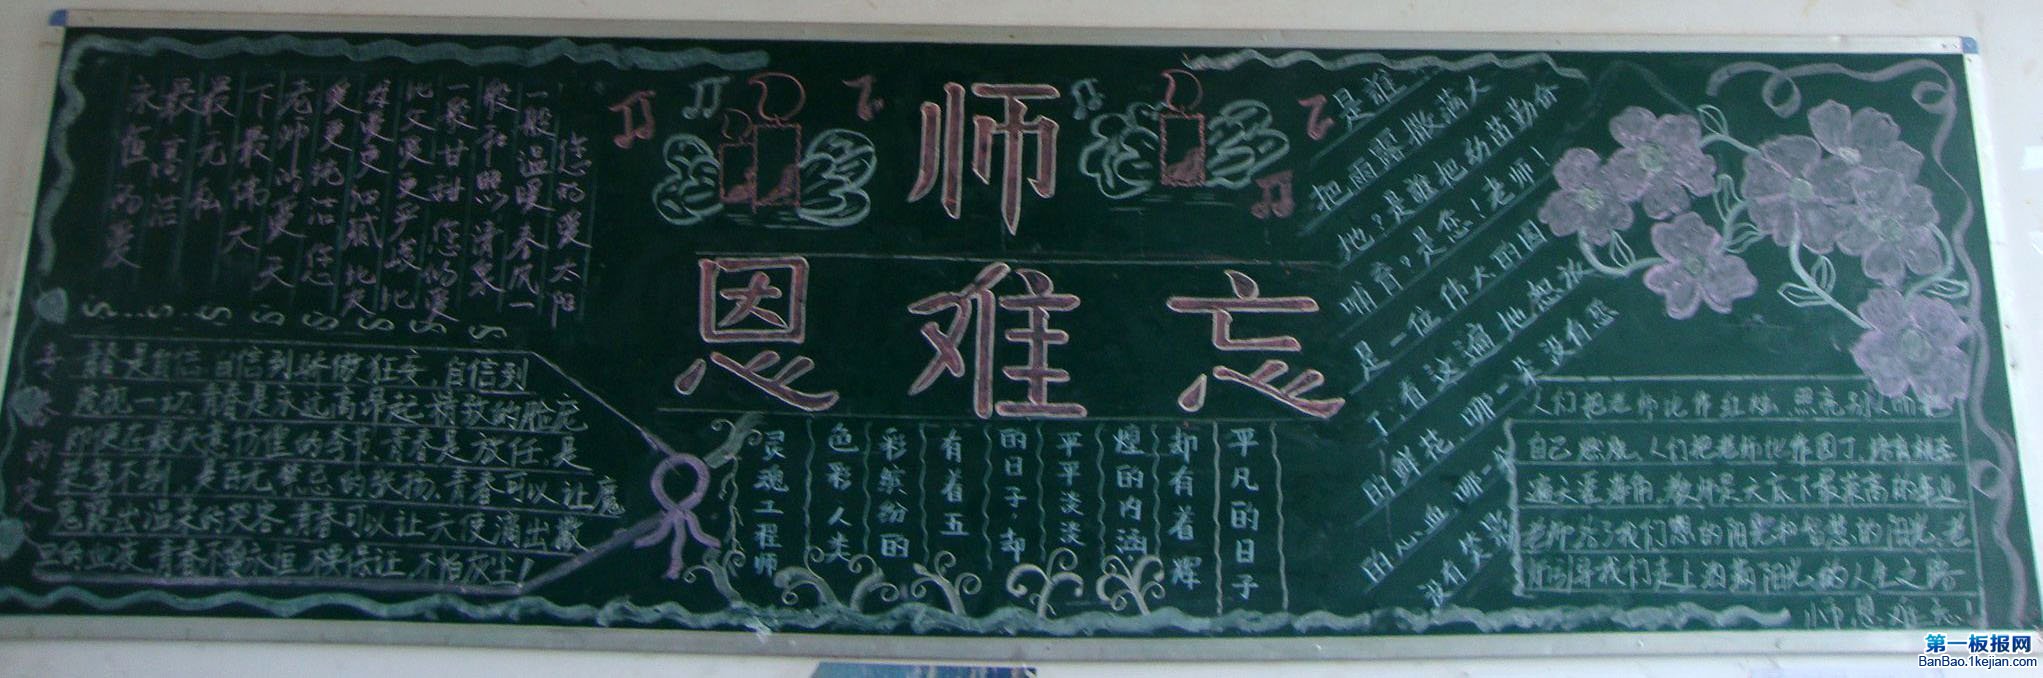 师
恩难忘
您的爱太阳
一般温暖春风一
般和煦清泉
一般甘甜您的爱
比父爱更严峻比
母爱更细腻比友
爱更纯洁您
老师的爱天
下最伟大
最无私
最高洁
永恒的爱
青春是自信,自信到骄傲狂妄,自信到
藐视一切.青春是永远高昂起精致的脸庞
青春是放任.是
的张扬.青春可以让魔
鬼露出温柔的笑容.青春可以让天使滴出
青春不要永恒不要保证不怕灰尘!
平凡的日子
却有着辉
煌的内涵
平平淡淡
的日子却
有着五
彩缤纷的
色彩人类
灵魂工程师
是谁
把雨露撒满大
地?是谁把幼苗勤奋
哺育?是您!老师!
是一位伟大的园
丁,看这遍地怒放
的鲜花,哪一朵没有您
的心血,哪一朵
没有
人们把老师比作红烛,照亮别人
自己燃成 人们把老师比作园丁,培育桃李
遍天涯海角.教师是天底下最荣高的事业
老师给了我们您的阳光和智慧的阳光.老
师引导我们走上洒满阳光的人生之路
师恩难忘!
第一板报网
BanBao.1kejian.com